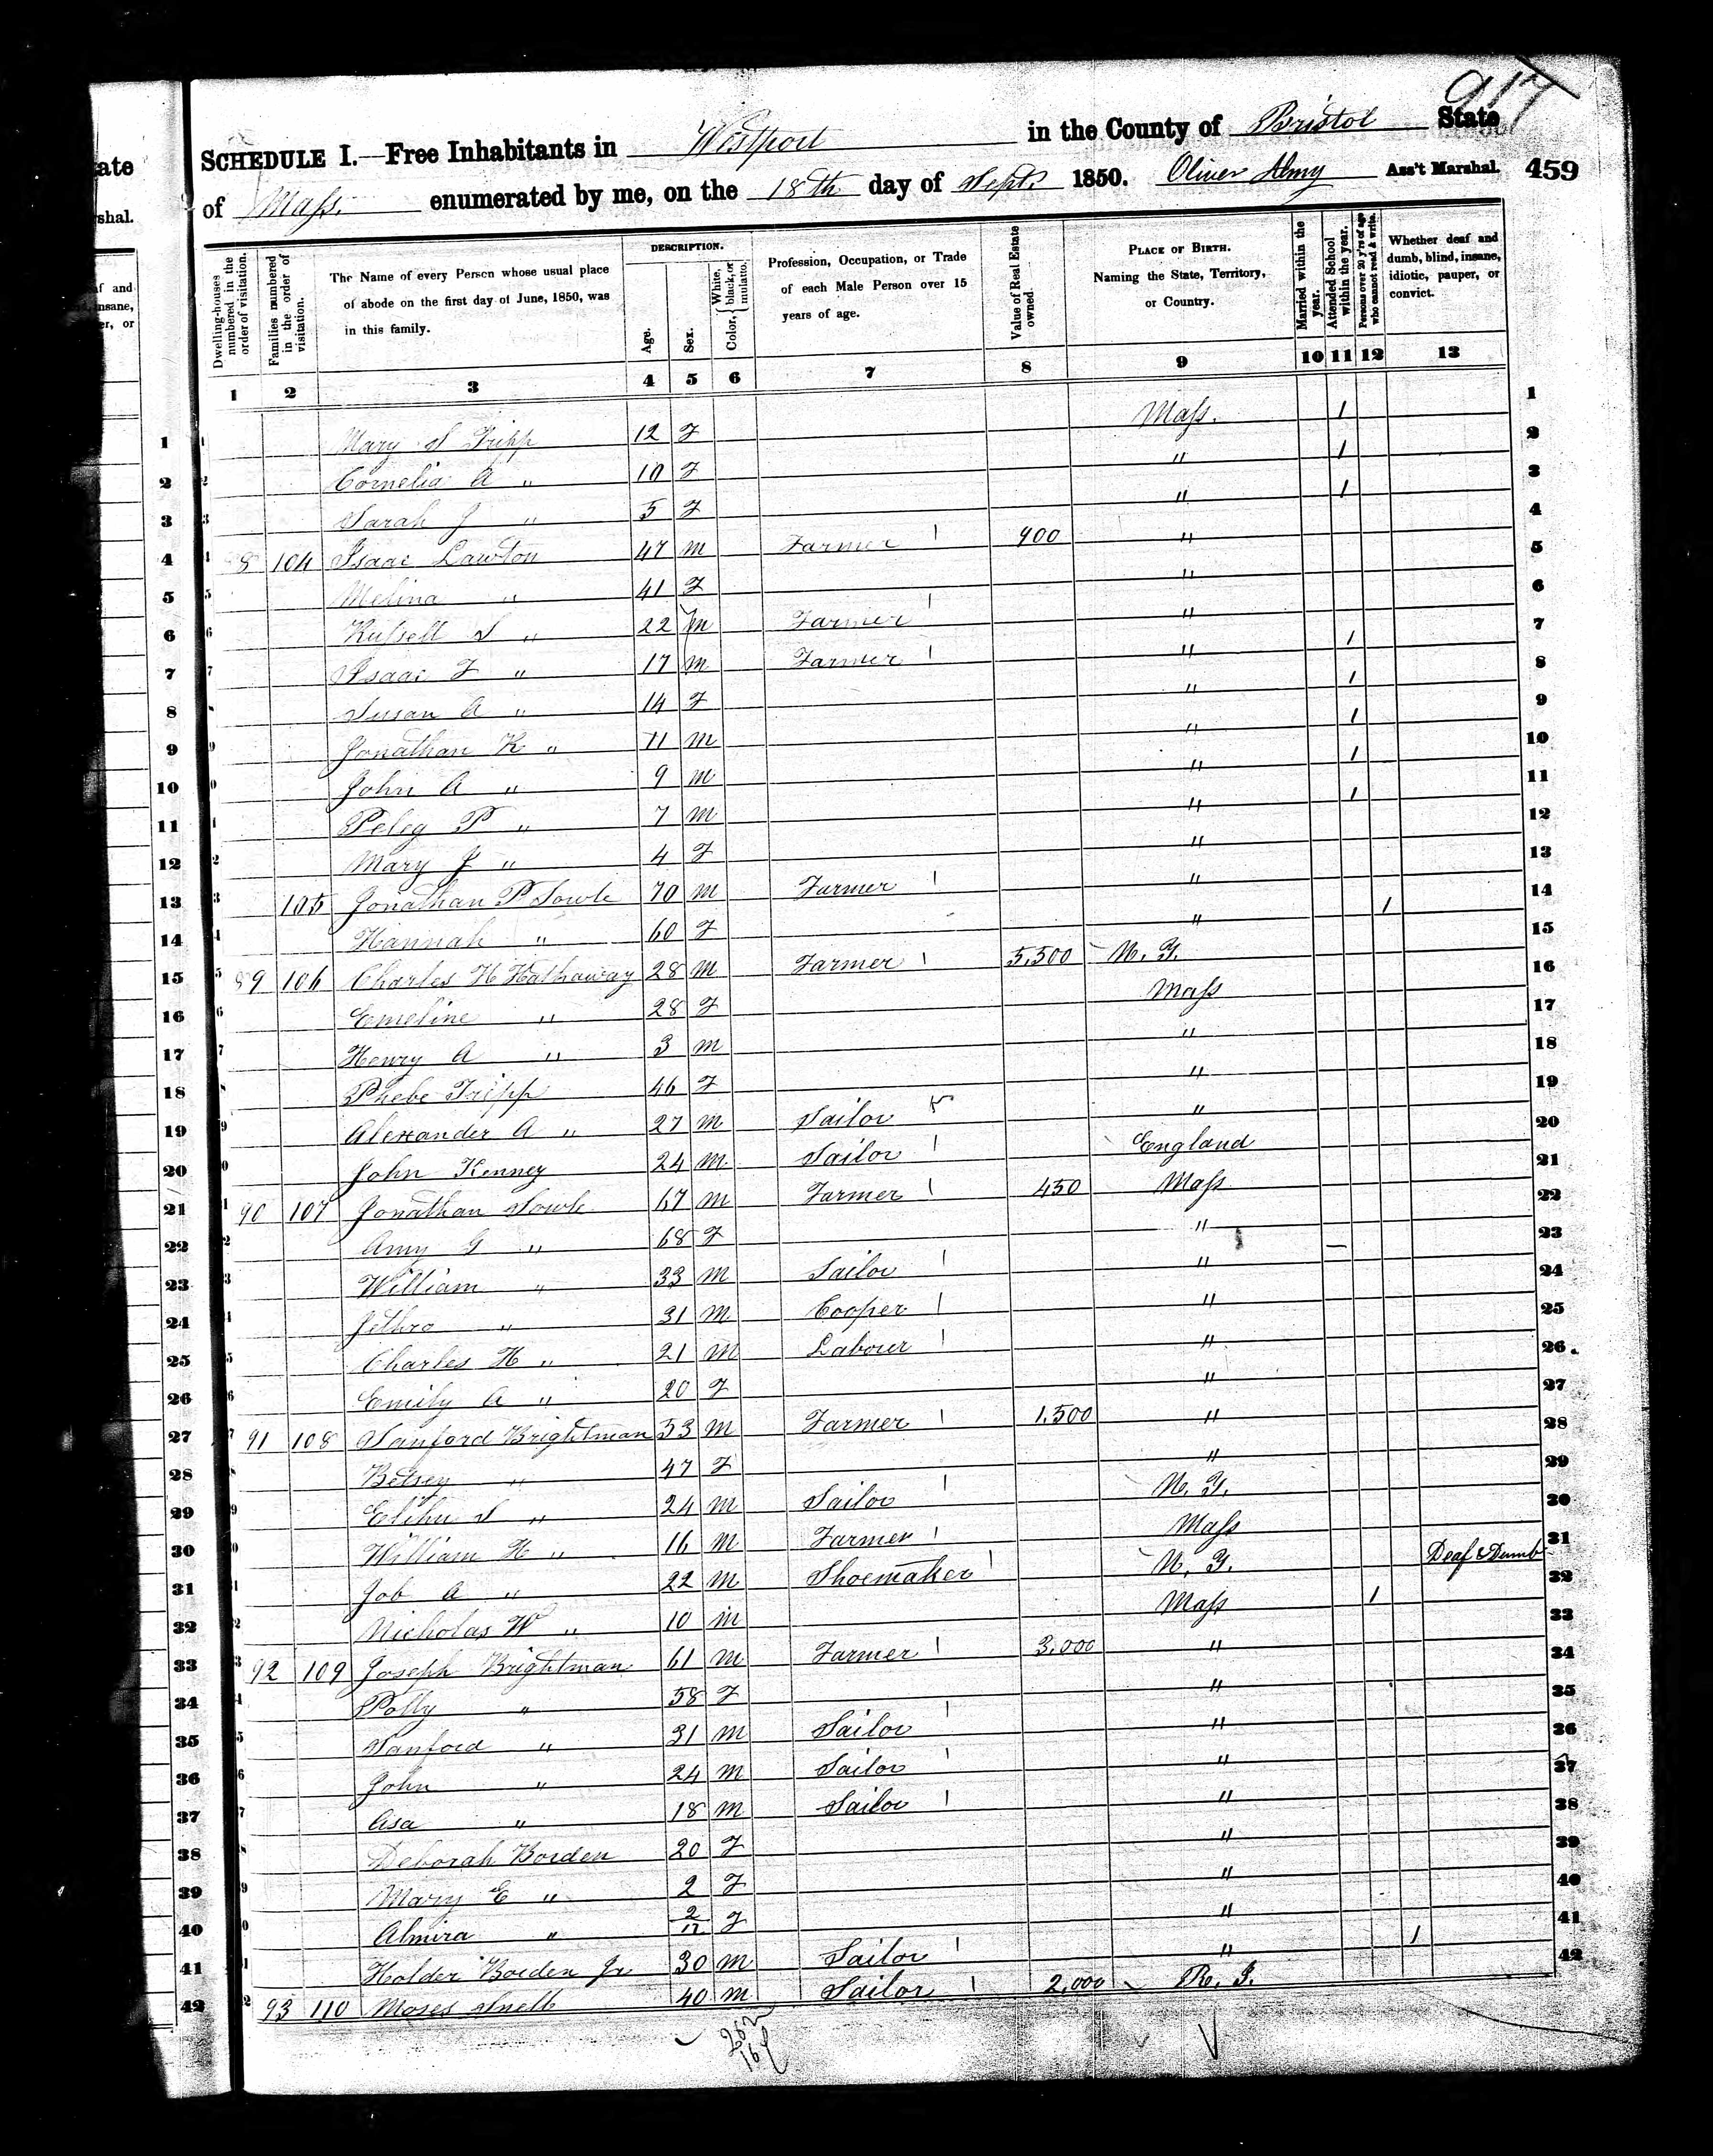 917
SCHEDULE I.—Free Inhabitants in Westport in the County of Bristol State
of Mass. enumerated by me, on the 18th day of Sept. 1850. Oliver Almy Ass't Marshal. 459
ate
shal.
Dwelling-houses numbered in the order of visitation.
Families numbered in the order of visitation.
The Name of every Person whose usual place of abode on the first day of June, 1850, was in this family.
DESCRIPTION.
Age.
Sex.
Color, { White, black, or mulatto.
Profession, Occupation, or Trade of each Male Person over 15 years of age.
Value of Real Estate owned.
PLACE OF BIRTH. Naming the State, Territory, or Country.
Married within the year.
Attended School within the year.
Persons over 20 y'rs of age who cannot read & write.
Whether deaf and dumb, blind, insane, idiotic, pauper, or convict.
1 2 3 4 5 6 7 8 9 10 11 12 13
1 Mary S Tripp 12 F Mass. 1 1
2 Cornelia A " 10 F " 1 2
3 Sarah J " 5 F " 1 3
4 8 104 Isaac Lawton 47 M Farmer 1 900 " 4
5 Melina " 41 F " 5
6 Russell S " 22 M Farmer 1 " 6
7 Isaac F " 17 M Farmer 1 " 1 7
8 Susan A " 14 F " 1 8
9 Jonathan K " 11 M " 1 9
10 John A " 9 M " 1 10
11 Peleg P " 7 M " 1 11
12 Mary J " 4 F " 12
13 105 Jonathan P Sowle 70 M Farmer 1 " 13
14 Hannah " 60 F " 1 14
15 89 106 Charles H Hathaway 28 M Farmer 1 5,500 N. Y. 15
16 Emeline " 28 F Mass 16
17 Henry A " 3 M " 17
18 Phebe Tripp 46 F " 18
19 Alexander A " 27 M Sailor " 19
20 John Kenney 24 M Sailor 1 England 20
21 90 107 Jonathan Sowle 67 M Farmer 1 450 Mass 21
22 Amy G " 68 F " 22
23 William " 33 M Sailor 1 " 23
24 Jethro " 31 M Cooper 1 " 24
25 Charles H " 21 M Labour 1 " 25
26 Emily A " 20 F " 26
27 91 108 Sanford Brightman 53 M Farmer 1 1,500 " 27
28 Betsey " 47 F " 28
29 Elihu S " 24 M Sailor 1 N. Y. 29
30 William H " 16 M Farmer 1 Mass 30
31 Job A " 22 M Shoemaker 1 N. Y. Deaf & Dumb 31
32 Nicholas W " 10 M Mass 1 32
33 92 109 Joseph Brightman 61 M Farmer 1 3,000 " 33
34 Polly " 58 F " 34
35 Sanford " 31 M Sailor 1 " 35
36 John " 24 M Sailor 1 " 36
37 Asa " 18 M Sailor 1 " 37
38 Deborah Borden 20 F " 38
39 Mary E " 2 F " 39
40 Almira " 2/12 F " 40
41 Holder Borden Jr 30 M Sailor 1 " 1 41
42 93 110 Moses Snell 40 M Sailor 1 2,000 R. I. 42